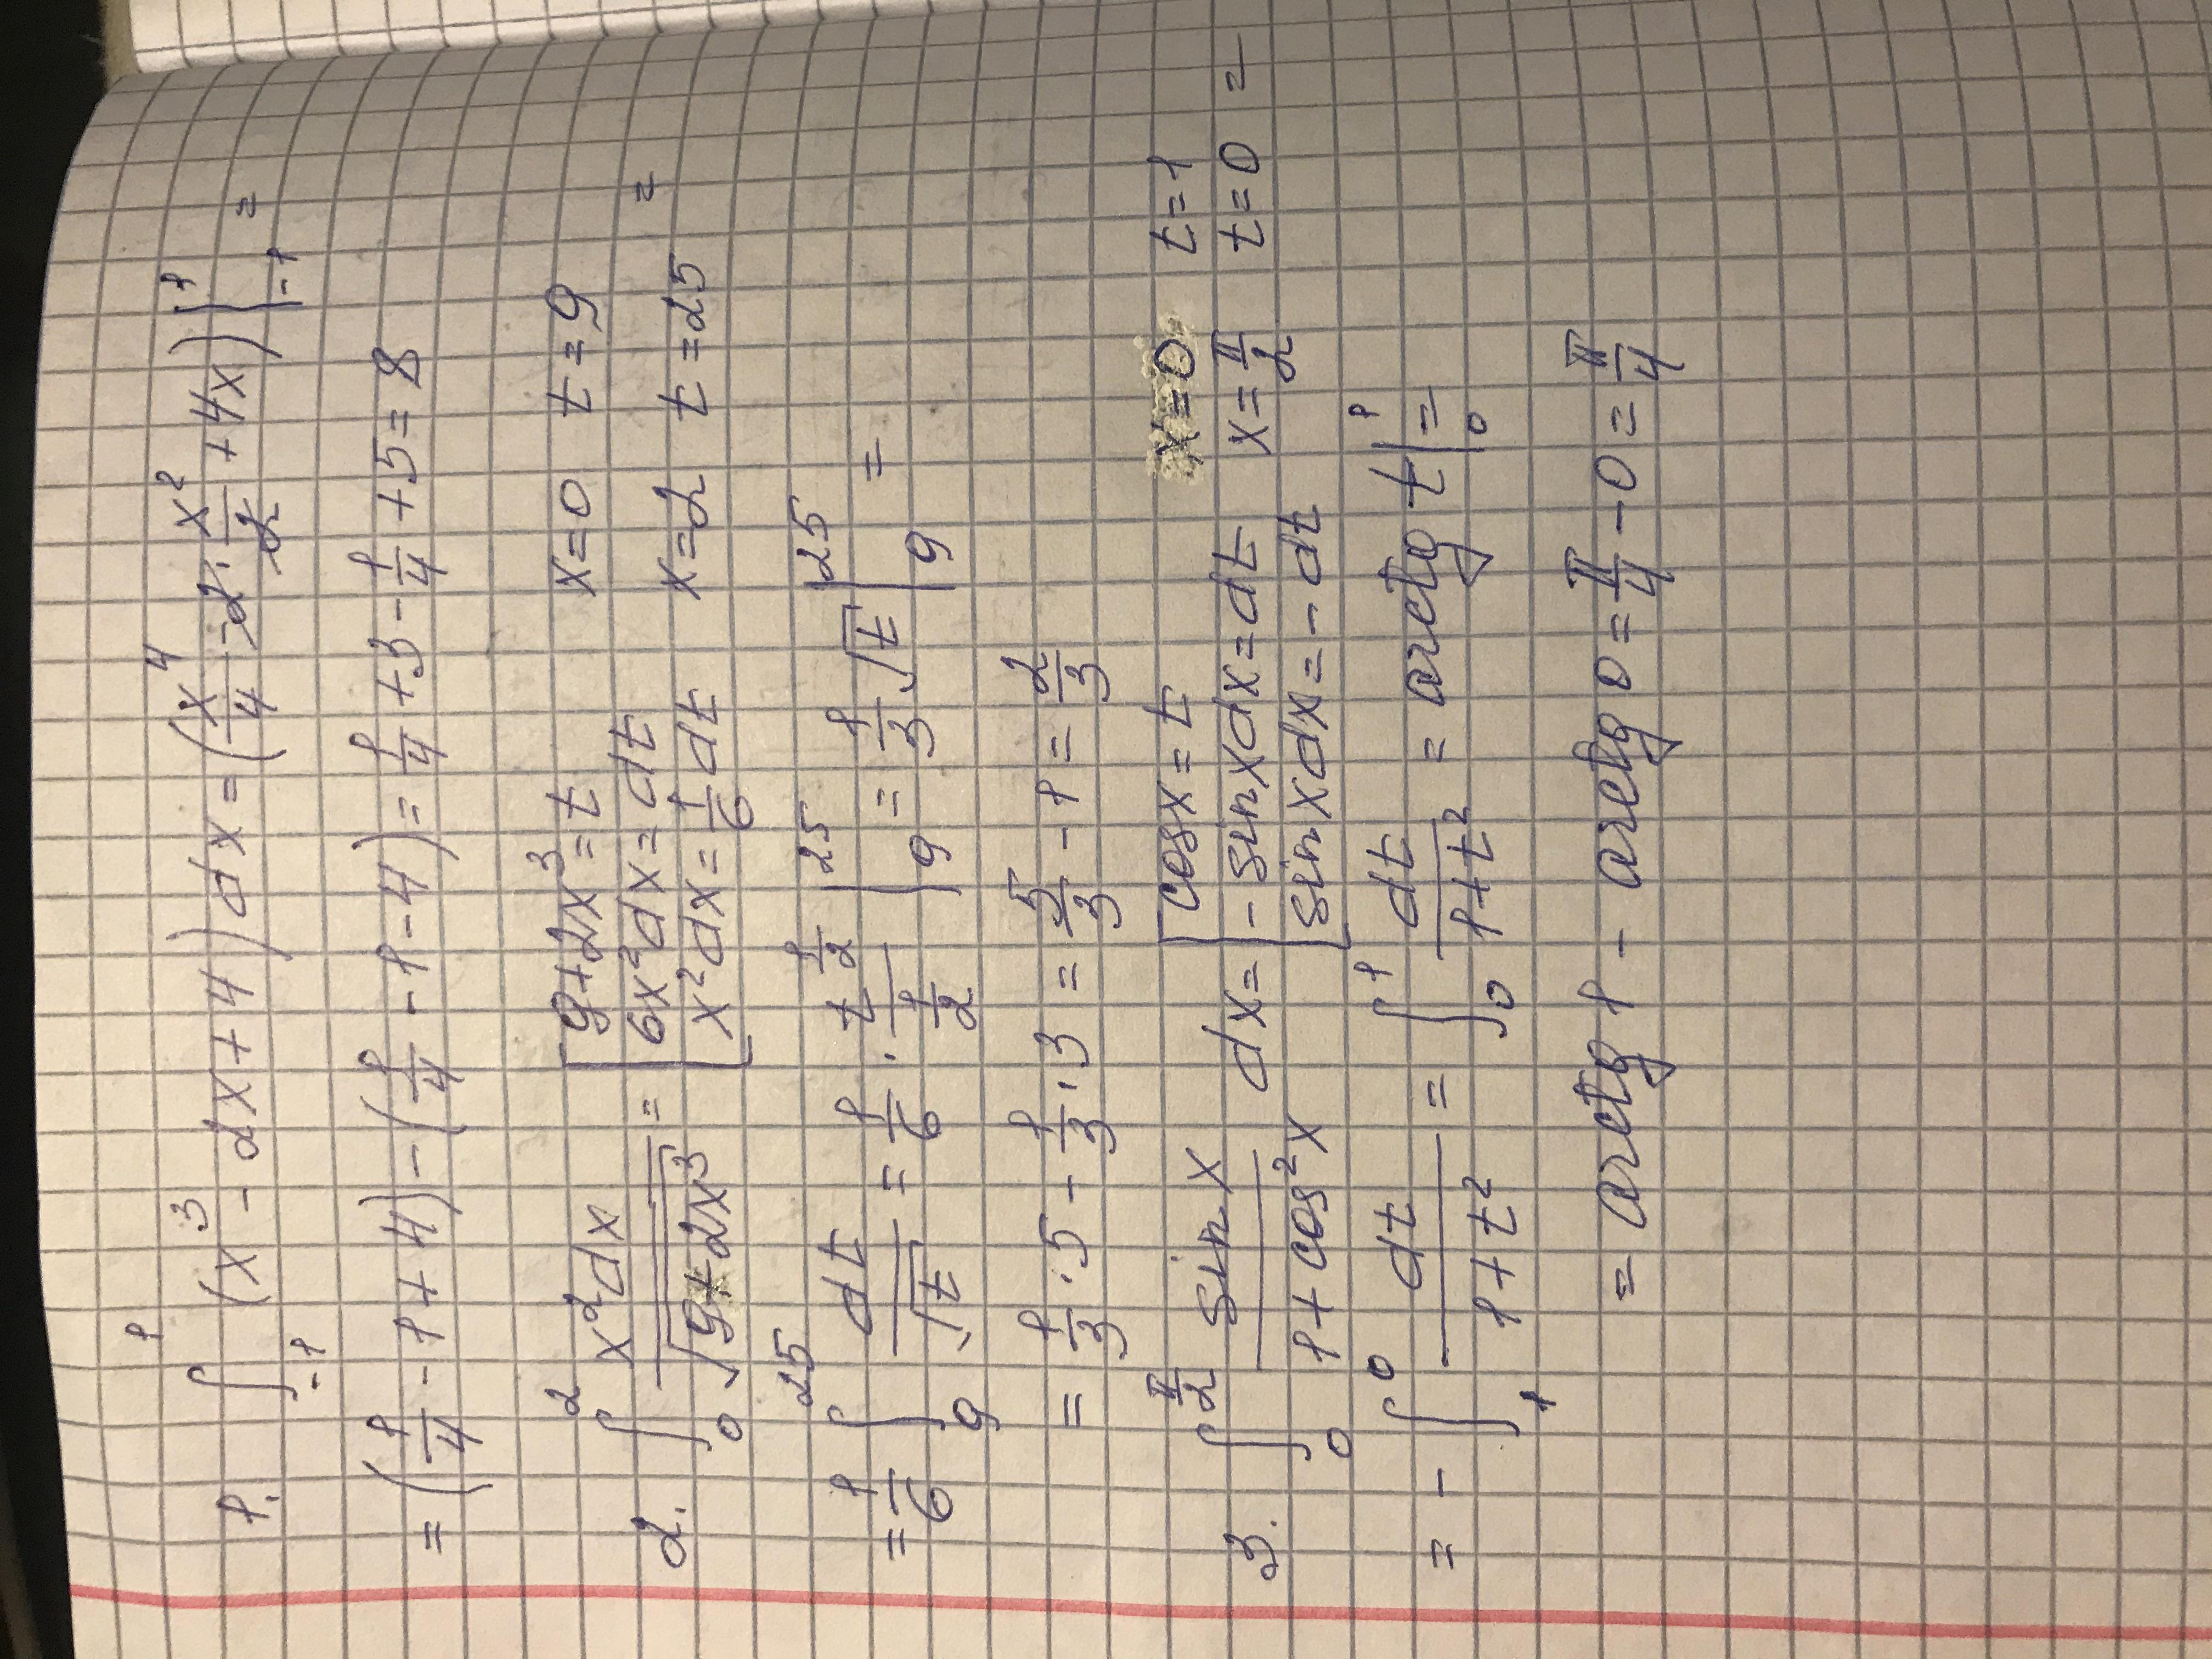 1. ∫₋₁¹ (x³ - 2x + 4) dx = (x⁴/4 - 2 · x²/2 + 4x) |₋₁¹ =
= (1/4 - 1 + 4) - (1/4 - 1 - 4) = 1/4 + 3 - 1/4 + 5 = 8
2. ∫₀² x²dx/√(9+2x³) = [9+2x³ = t x=0 t=9
6x²dx = dt
x²dx = 1/6 dt x=2 t=25 =
= 1/6 ∫₉²⁵ dt/√t = 1/6 · t^(1/2)/(1/2) |₉²⁵ = 1/3 √t |₉²⁵ =
= 1/3 · 5 - 1/3 · 3 = 5/3 - 1 = 2/3
3. ∫₀^(π/2) sin x/(1+cos²x) dx = [cosx = t x=0 t=1
- sinxdx = dt x=π/2 t=0 =
sinxdx = - dt
= - ∫₁⁰ dt/(1+t²) = ∫₀¹ dt/(1+t²) = arctg t |₀¹ =
= arctg 1 - arctg 0 = π/4 - 0 = π/4